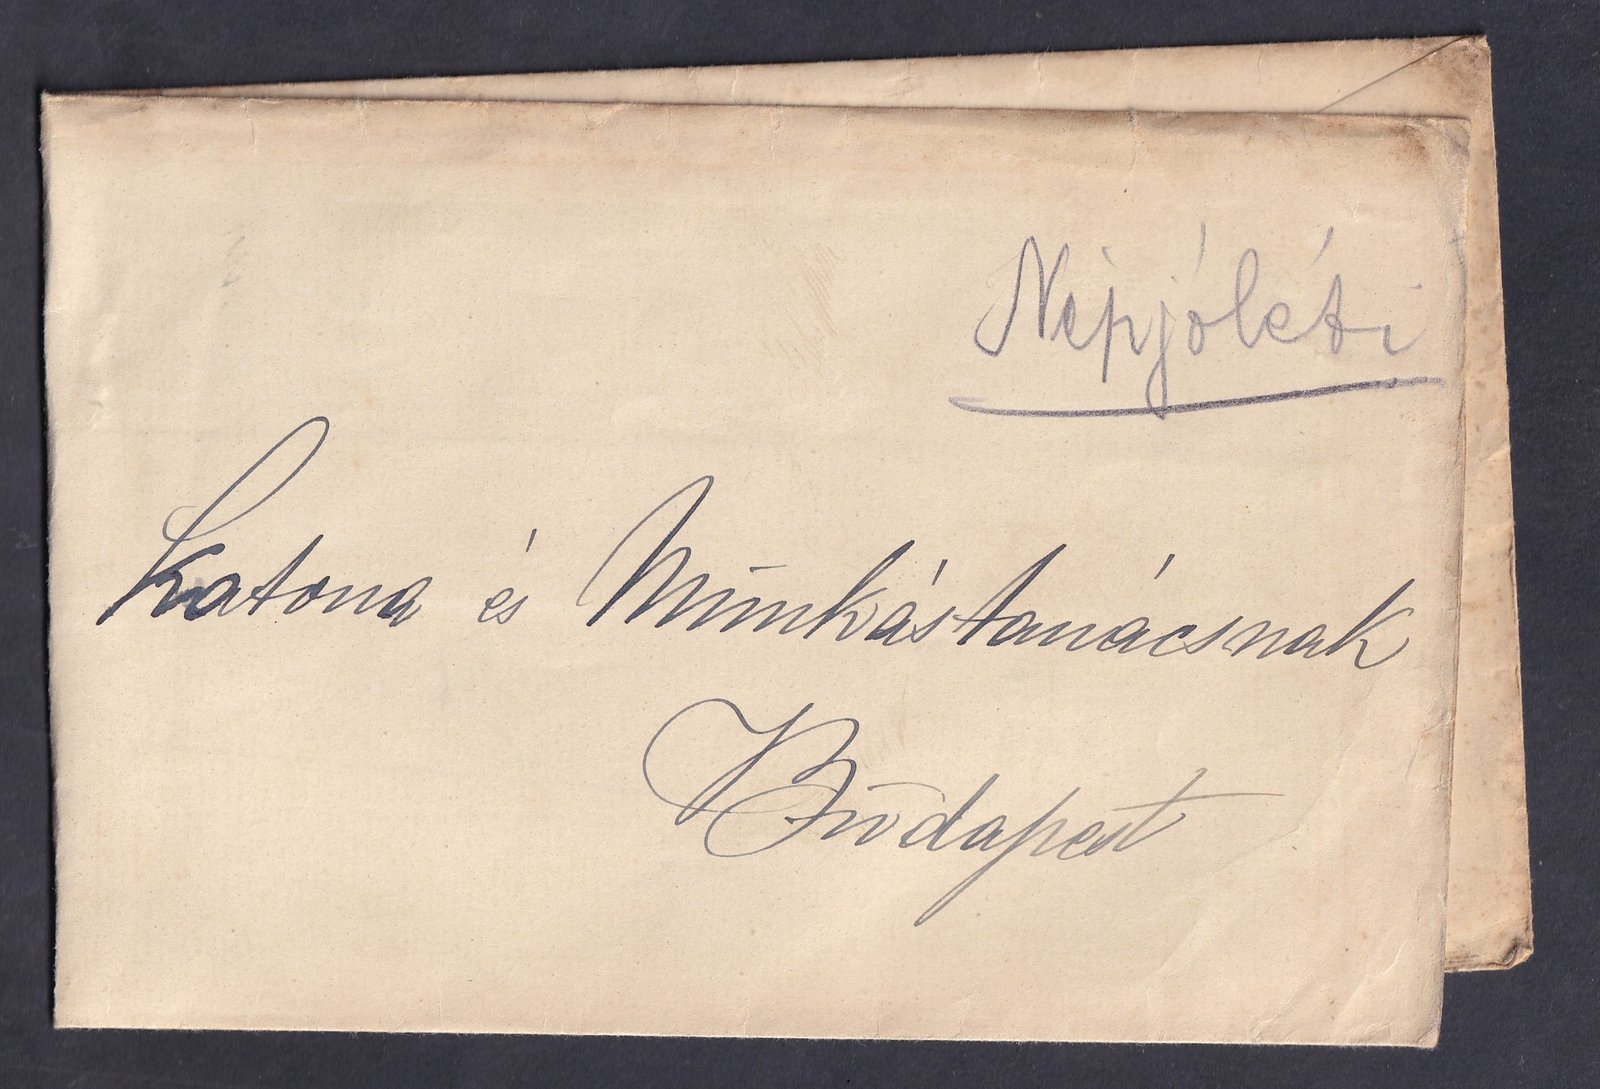 Népjóléti
Katona és Munkástanácsnak
Budapest